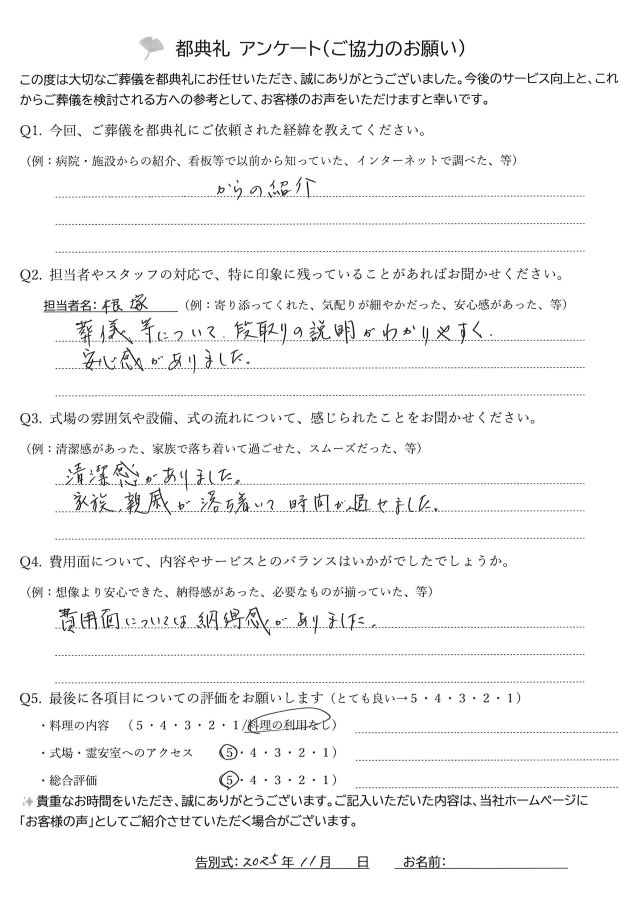 都典礼 アンケート(ご協力のお願い)
この度は大切なご葬儀を都典礼にお任せいただき、誠にありがとうございました。今後のサービス向上と、これ
からご葬儀を検討される方への参考として、お客様のお声をいただけますと幸いです。
Q1. 今回、ご葬儀を都典礼にご依頼された経緯を教えてください。
(例：病院・施設からの紹介、看板等で以前から知っていた、インターネットで調べた、等)
からの紹介
Q2. 担当者やスタッフの対応で、特に印象に残っていることがあればお聞かせください。
担当者名：根塚 (例：寄り添ってくれた、気配りが細やかだった、安心感があった、等)
葬儀等について、段取りの説明がわかりやすく、
安心感がありました。
Q3. 式場の雰囲気や設備、式の流れについて、感じられたことをお聞かせください。
(例：清潔感があった、家族で落ち着いて過ごせた、スムーズだった、等)
清潔感がありました。
家族、親戚が落ち着いて時間が過せました。
Q4. 費用面について、内容やサービスとのバランスはいかがでしたでしょうか。
(例：想像より安心できた、納得感があった、必要なものが揃っていた、等)
費用面については納得感がありました。
Q5. 最後に各項目についての評価をお願いします(とても良い→5・4・3・2・1)
・料理の内容 (5・4・3・2・1/料理の利用なし)
・式場・霊安室へのアクセス (5・4・3・2・1)
・総合評価 (5・4・3・2・1)
貴重なお時間をいただき、誠にありがとうございます。ご記入いただいた内容は、当社ホームページに
「お客様の声」としてご紹介させていただく場合がございます。
告別式：2025年11月 日 お名前：